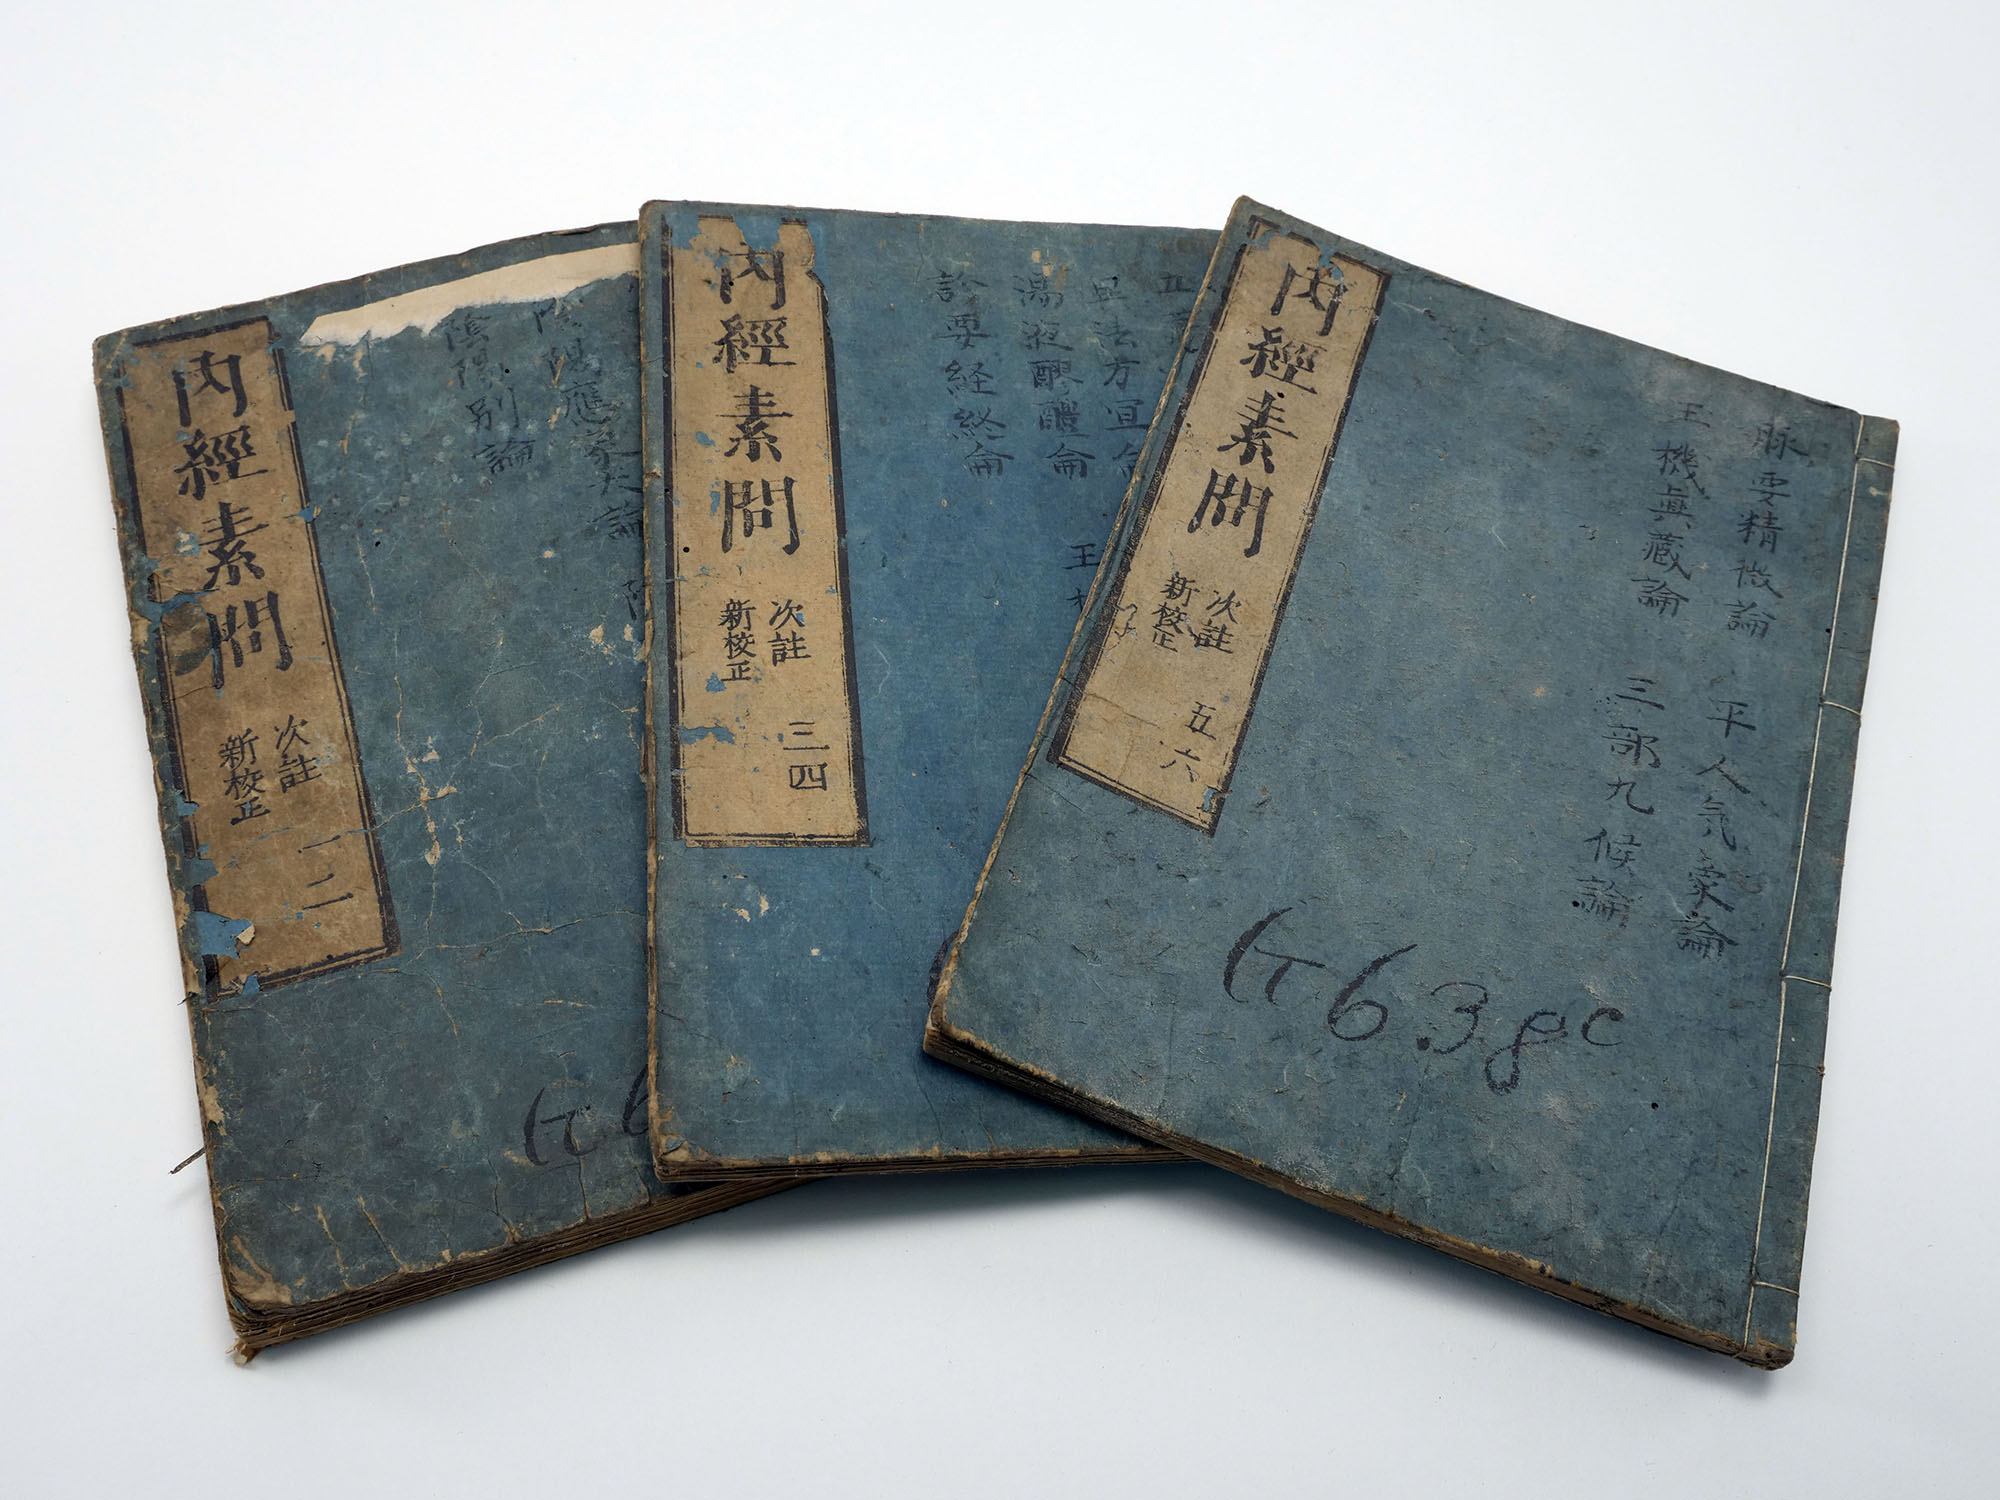 內經素問
次註
新校正
一二
陰陽應象大論
陰陽別論
內經素問
次註
新校正
三四
五藏
異法方宜論
湯液醪醴論
診要経終論
內經素問
次註
新校正
五六
脉要精微論
平人気象論
王機真蔵論
三部九候論
G638c